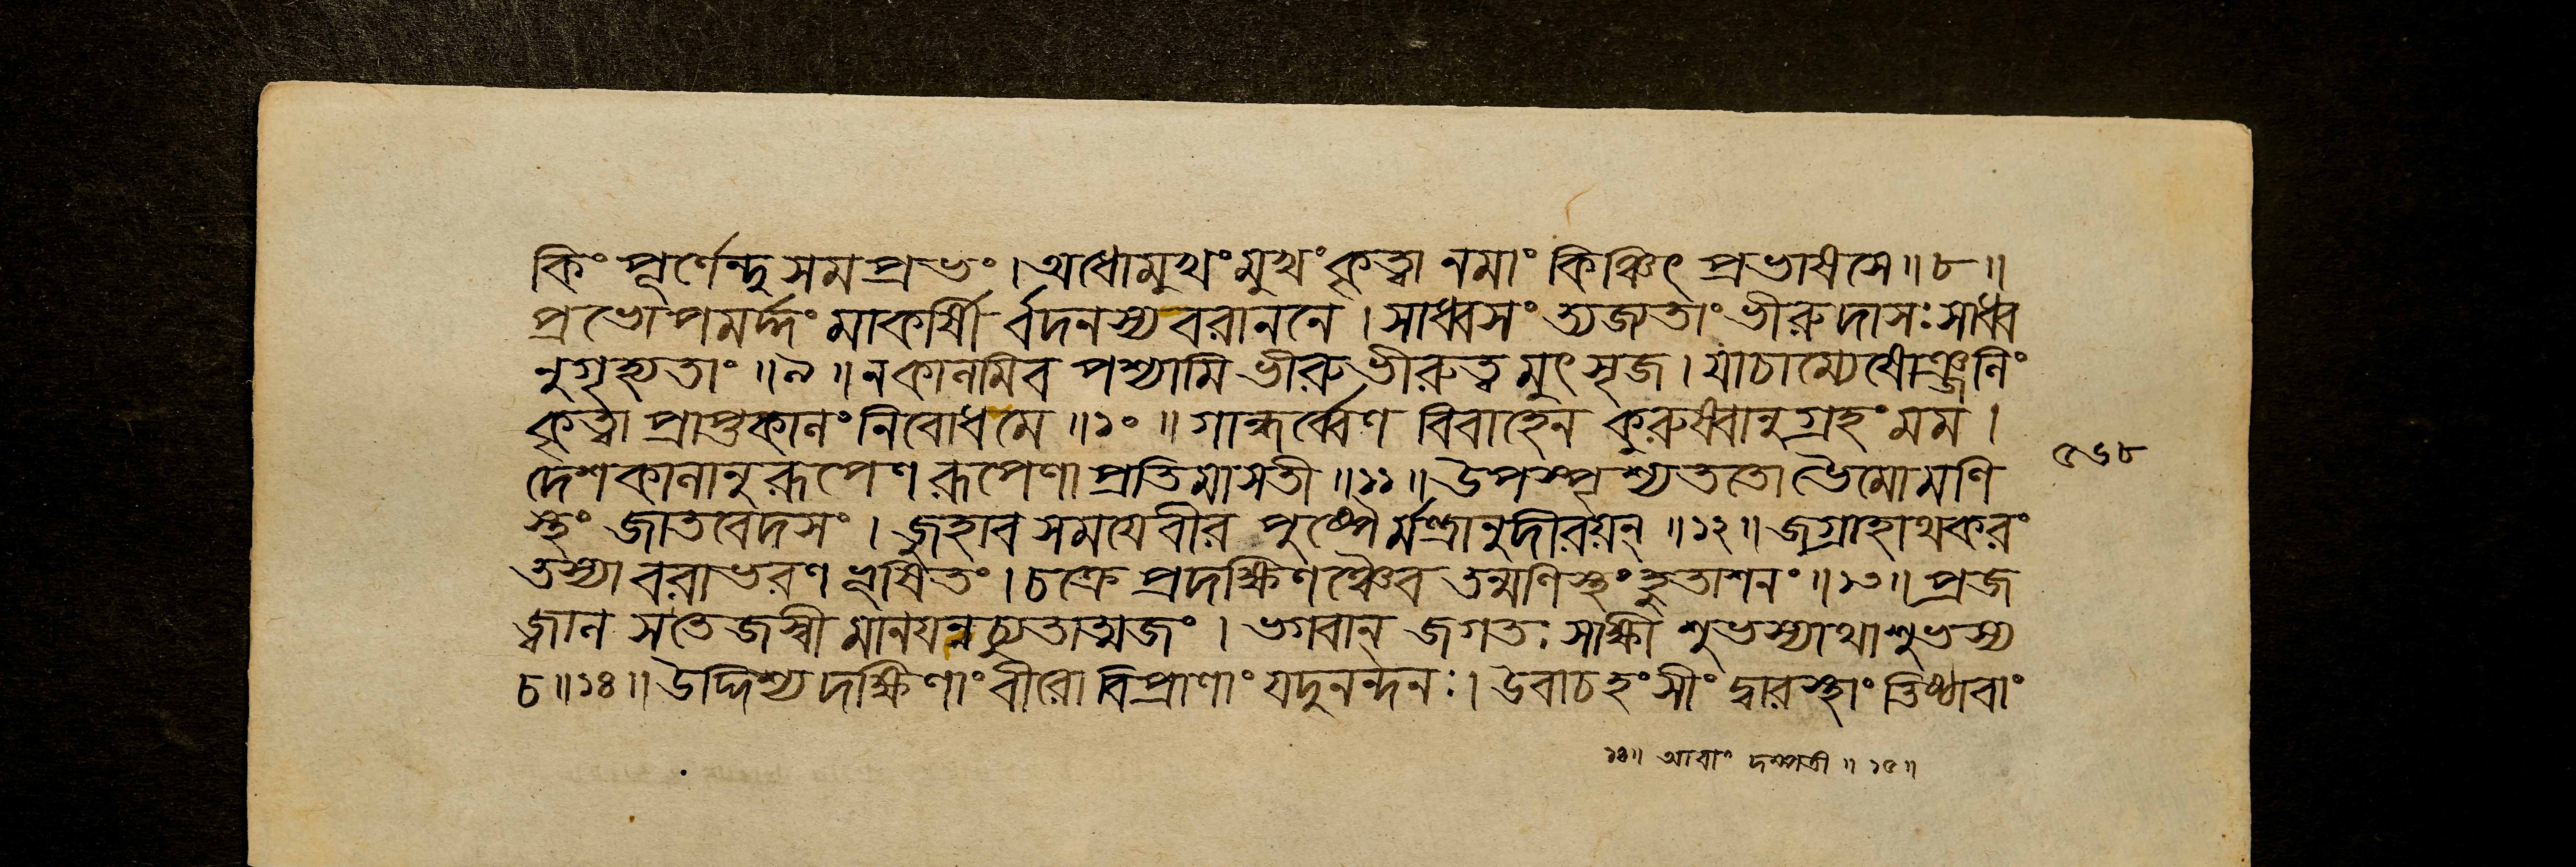 কিং পূর্ণেন্দুসমপ্রভং । অধোমুখং মুখং কৃত্বা নমাং কিঞ্চিৎ প্রভাষসে ॥ ৮ ॥
প্রভোপমর্দ্দং মাকর্ষী র্বদনস্য বরাননে । সাধ্বসং ত্যজ্যতাং ভীরু দাসঃ সাধ্ব
নুগৃহ্যতাং ॥ ৯ ॥ নকালমিব পশ্যামি ভীরু ভীরুত্ব মুৎসৃজ । যাচাম্যেষোঞ্জলিং
কৃত্বা প্রাপ্তকালং নিবোধমে ॥ ১০ ॥ গান্ধর্ব্বেণ বিবাহেন কুরুষ্বানুগ্রহং মম ।
দেশকালানুরূপেণ রূপেণাপ্রতিমাসতী ॥ ১১ ॥ উপস্পৃশ্য ততো ভৈমো মণি
স্থং জাতবেদসং । জুহাব সময়ে বীর পুষ্পৈর্মন্ত্রানুদীরয়ন্ ॥ ১২ ॥ জগ্রাহাথকরং
তস্যা বরাভরণ ভূষিতং । চক্রে প্রদক্ষিণঞ্চৈব তন্মণিস্থং হুতাশনং ॥ ১৩ ॥ প্রজ
জ্বাল সতেজস্বী মানয়ন্নচ্যুতাত্মজং । ভগবান্ জগতঃ সাক্ষী শুভস্যাথাশুভস্য
চ ॥ ১৪ ॥ উদ্দিশ্য দক্ষিণাং বীরো বিপ্রাণাং যদুনন্দনঃ । উবাচ হংসীং দ্বারস্থাং তিষ্ঠাবাং
৫৬৮
১৪ ॥ আবাং দম্পতী ॥ ১৫ ॥